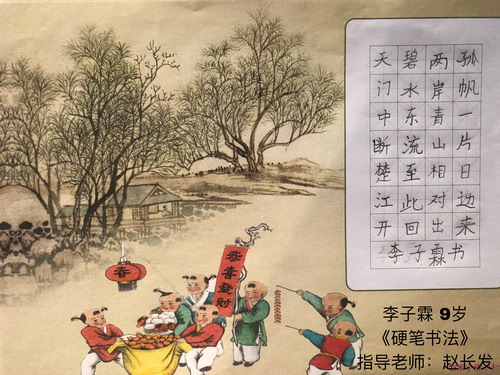 天门中断楚江开
碧水东流至此回
两岸青山相对出
孤帆一片日边来
李子霖书
春
恭喜發財
李子霖 9岁
《硬笔书法》
指导老师：赵长发